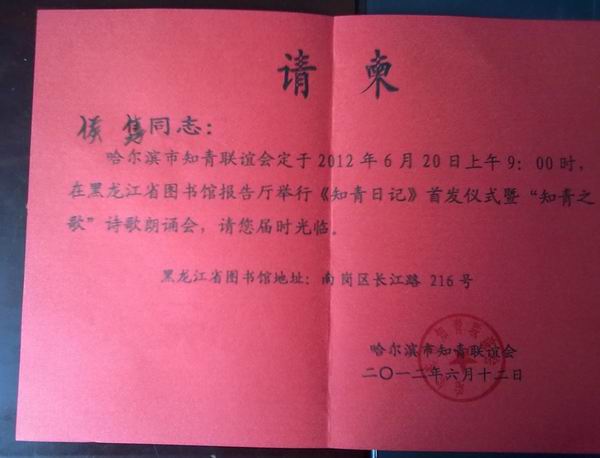 请柬
侯隽同志：
哈尔滨市知青联谊会定于2012年6月20日上午9：00时，
在黑龙江省图书馆报告厅举行《知青日记》首发仪式暨“知青之
歌”诗歌朗诵会，请您届时光临。
黑龙江省图书馆地址：南岗区长江路 216号
哈尔滨市知青联谊会
二〇一二年六月十二日